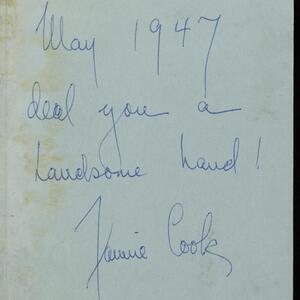 May 1947
deal you a
handsome hand!
Fannie Cook